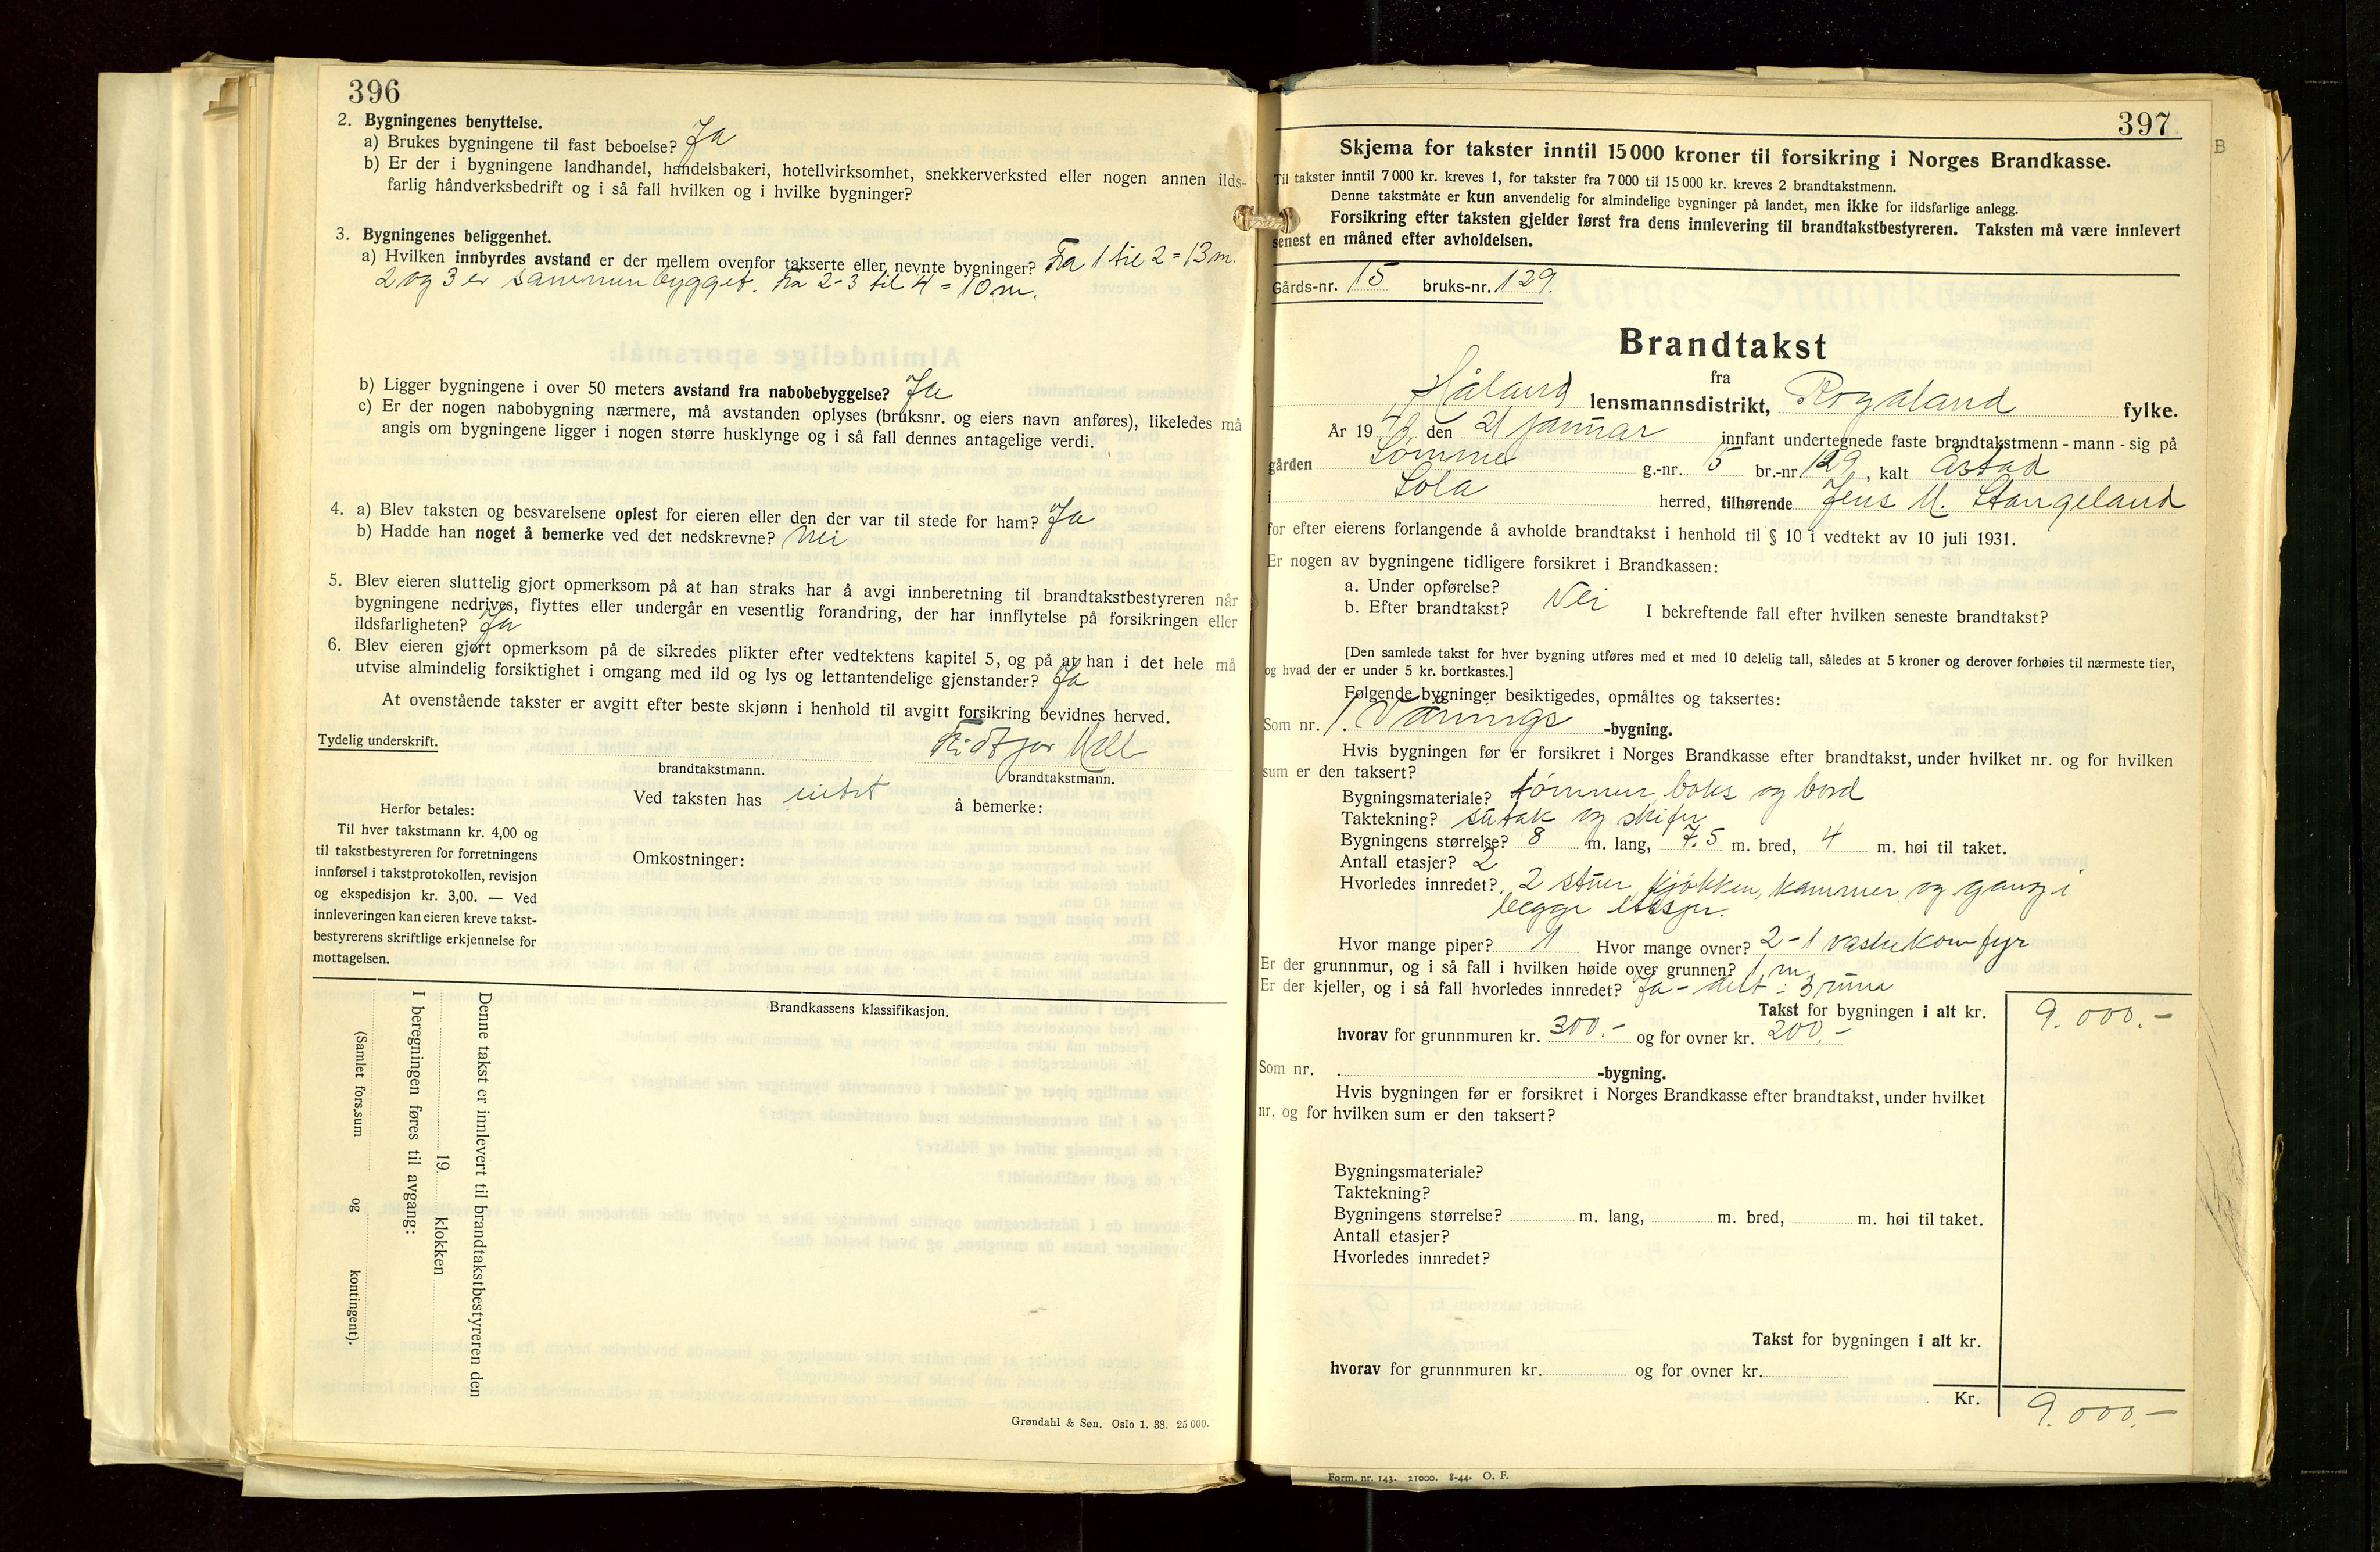 396
2. Bygningenes benyttelse.
a) Brukes bygningene til fast beboelse? Ja
b) Er der i bygningene landhandel, handelsbakeri, hotellvirksomhet, snekkerverksted eller nogen annen ilds-
farlig håndverksbedrift og i så fall hvilken og i hvilke bygninger?
3. Bygningenes beliggenhet.
a) Hvilken innbyrdes avstand er der mellem ovenfor takserte eller nevnte bygninger? Fra 1 til 2 = 13 m.
2 og 3 er sammenbygget. Fra 2-3 til 4 = 10 m.
b) Ligger bygningene i over 50 meters avstand fra nabobebyggelse? Ja
c) Er der nogen nabobygning nærmere, må avstanden oplyses (bruksnr. og eiers navn anføres), likeledes må
angis om bygningene ligger i nogen større husklynge og i så fall dennes antagelige verdi.
4. a) Blev taksten og besvarelsene oplest for eieren eller den der var til stede for ham? Ja
b) Hadde han noget å bemerke ved det nedskrevne? Nei
5. Blev eieren sluttelig gjort opmerksom på at han straks har å avgi innberetning til brandtakstbestyreren når
bygningene nedrives, flyttes eller undergår en vesentlig forandring, der har innflytelse på forsikringen eller
ildsfarligheten? Ja
6. Blev eieren gjort opmerksom på de sikredes plikter efter vedtektens kapitel 5, og på at han i det hele må
utvise almindelig forsiktighet i omgang med ild og lys og lettantendelige gjenstander? Ja
At ovenstående takster er avgitt efter beste skjønn i henhold til avgitt forsikring bevidnes herved.
Tydelig underskrift.
brandtakstmann. brandtakstmann.
Ved taksten has intet å bemerke:
Herfor betales:
Til hver takstmann kr. 4,00 og
til takstbestyreren for forretningens
innførsel i takstprotokollen, revisjon
og ekspedisjon kr. 3,00. — Ved
innleveringen kan eieren kreve takst-
bestyrerens skriftlige erkjennelse for
mottagelsen.
Omkostninger:
Brandkassens klassifikasjon.
Denne takst er innlevert til brandtakstbestyreren den
19 klokken
I beregningen føres til avgang:
(Samlet fors.sum og kontingent).
Grøndahl & Søn. Oslo 1. 38. 25 000.
397
B
Skjema for takster inntil 15 000 kroner til forsikring i Norges Brandkasse.
Til takster inntil 7 000 kr. kreves 1, for takster fra 7 000 til 15 000 kr. kreves 2 brandtakstmenn.
Denne takstmåte er kun anvendelig for almindelige bygninger på landet, men ikke for ildsfarlige anlegg.
Forsikring efter taksten gjelder først fra dens innlevering til brandtakstbestyreren. Taksten må være innlevert
senest en måned efter avholdelsen.
Gårds-nr. 15 bruks-nr. 129.
Brandtakst
fra
Håland lensmannsdistrikt, Rogaland fylke.
År 19 den 21 januar innfant undertegnede faste brandtakstmenn - mann - sig på
gården Sømme g.-nr. 15 br.-nr. 129, kalt Åstad
i Sola herred, tilhørende Jens M. Stangeland
for efter eierens forlangende å avholde brandtakst i henhold til § 10 i vedtekt av 10 juli 1931.
Er nogen av bygningene tidligere forsikret i Brandkassen:
a. Under opførelse?
b. Efter brandtakst? Nei I bekreftende fall efter hvilken seneste brandtakst?
[Den samlede takst for hver bygning utføres med et med 10 delelig tall, således at 5 kroner og derover forhøies til nærmeste tier,
og hvad der er under 5 kr. bortkastes.]
Følgende bygninger besiktigedes, opmåltes og taksertes:
Som nr. 1. Vånings -bygning.
Hvis bygningen før er forsikret i Norges Brandkasse efter brandtakst, under hvilket nr. og for hvilken
sum er den taksert?
Bygningsmateriale? tømmer, boks og bord
Taktekning? sutak og skifer
Bygningens størrelse? 8 m. lang, 7.5 m. bred, 4 m. høi til taket.
Antall etasjer? 2
Hvorledes innredet? 2 stuer, kjøkken, kammer og gang i
begge etasjer.
Hvor mange piper? 1 Hvor mange ovner? 2 - 1 vaskekomfyr
Er der grunnmur, og i så fall i hvilken høide over grunnen? 1 m
Er der kjeller, og i så fall hvorledes innredet? Ja - delt i 3 rum
Takst for bygningen i alt kr. 9.000.-
hvorav for grunnmuren kr. 300.- og for ovner kr. 200.-
Som nr. . -bygning.
Hvis bygningen før er forsikret i Norges Brandkasse efter brandtakst, under hvilket
nr. og for hvilken sum er den taksert?
Bygningsmateriale?
Taktekning?
Bygningens størrelse? m. lang, m. bred, m. høi til taket.
Antall etasjer?
Hvorledes innredet?
Takst for bygningen i alt kr.
hvorav for grunnmuren kr. og for ovner kr.
Kr. 9.000.-
Form. nr. 143. 21000. 8-44. O. F.